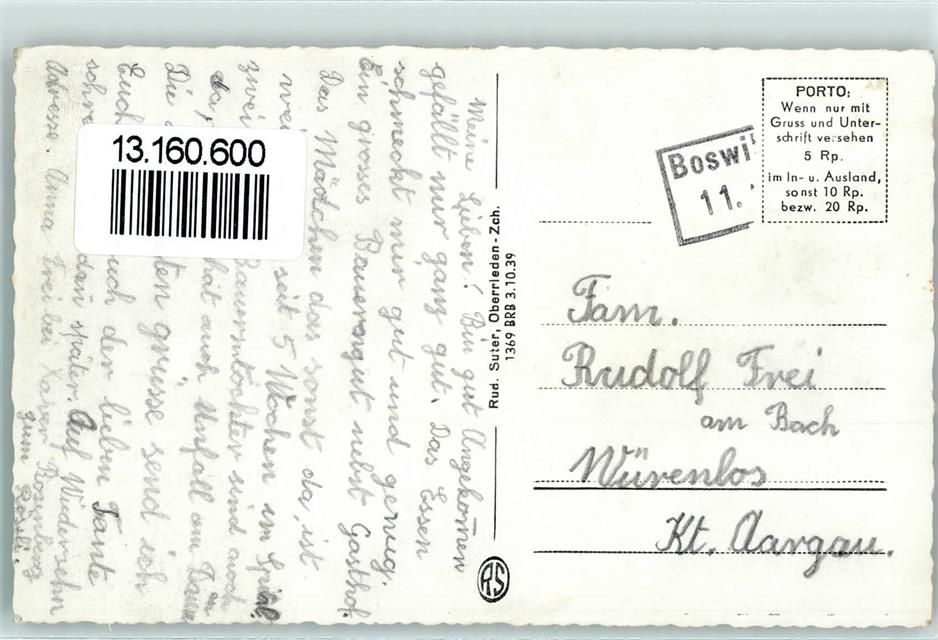 Meine Lieben! Bin gut Angekom̄en
gefällt mir ganz gut. Das Essen
schmeckt mir gut und genug.
Ein grosses Bauerngut nebst Gasthof.
Das Mädchen das sonst da ist
seit 5 Wochen im Spital.
zwei Bauerntöchter sind auch
da, hat auch Unfall am
Die grüsse send ich
Euch auch der lieben Tante
schre dan später. Auf Wiedersehn
Adresse. Anna Frei bei Xaver Rosenberg
zum Rössli.
13.160.600
Rud. Suter, Oberrieden-Zch.
1369 BRB 3.10.39
RS
Boswi
11.
PORTO:
Wenn nur mit
Gruss und Unter-
schrift versehen
5 Rp.
im In- u. Ausland,
sonst 10 Rp.
bezw. 20 Rp.
Fam.
Rudolf Frei
am Bach
Würenlos
Kt. Aargau.